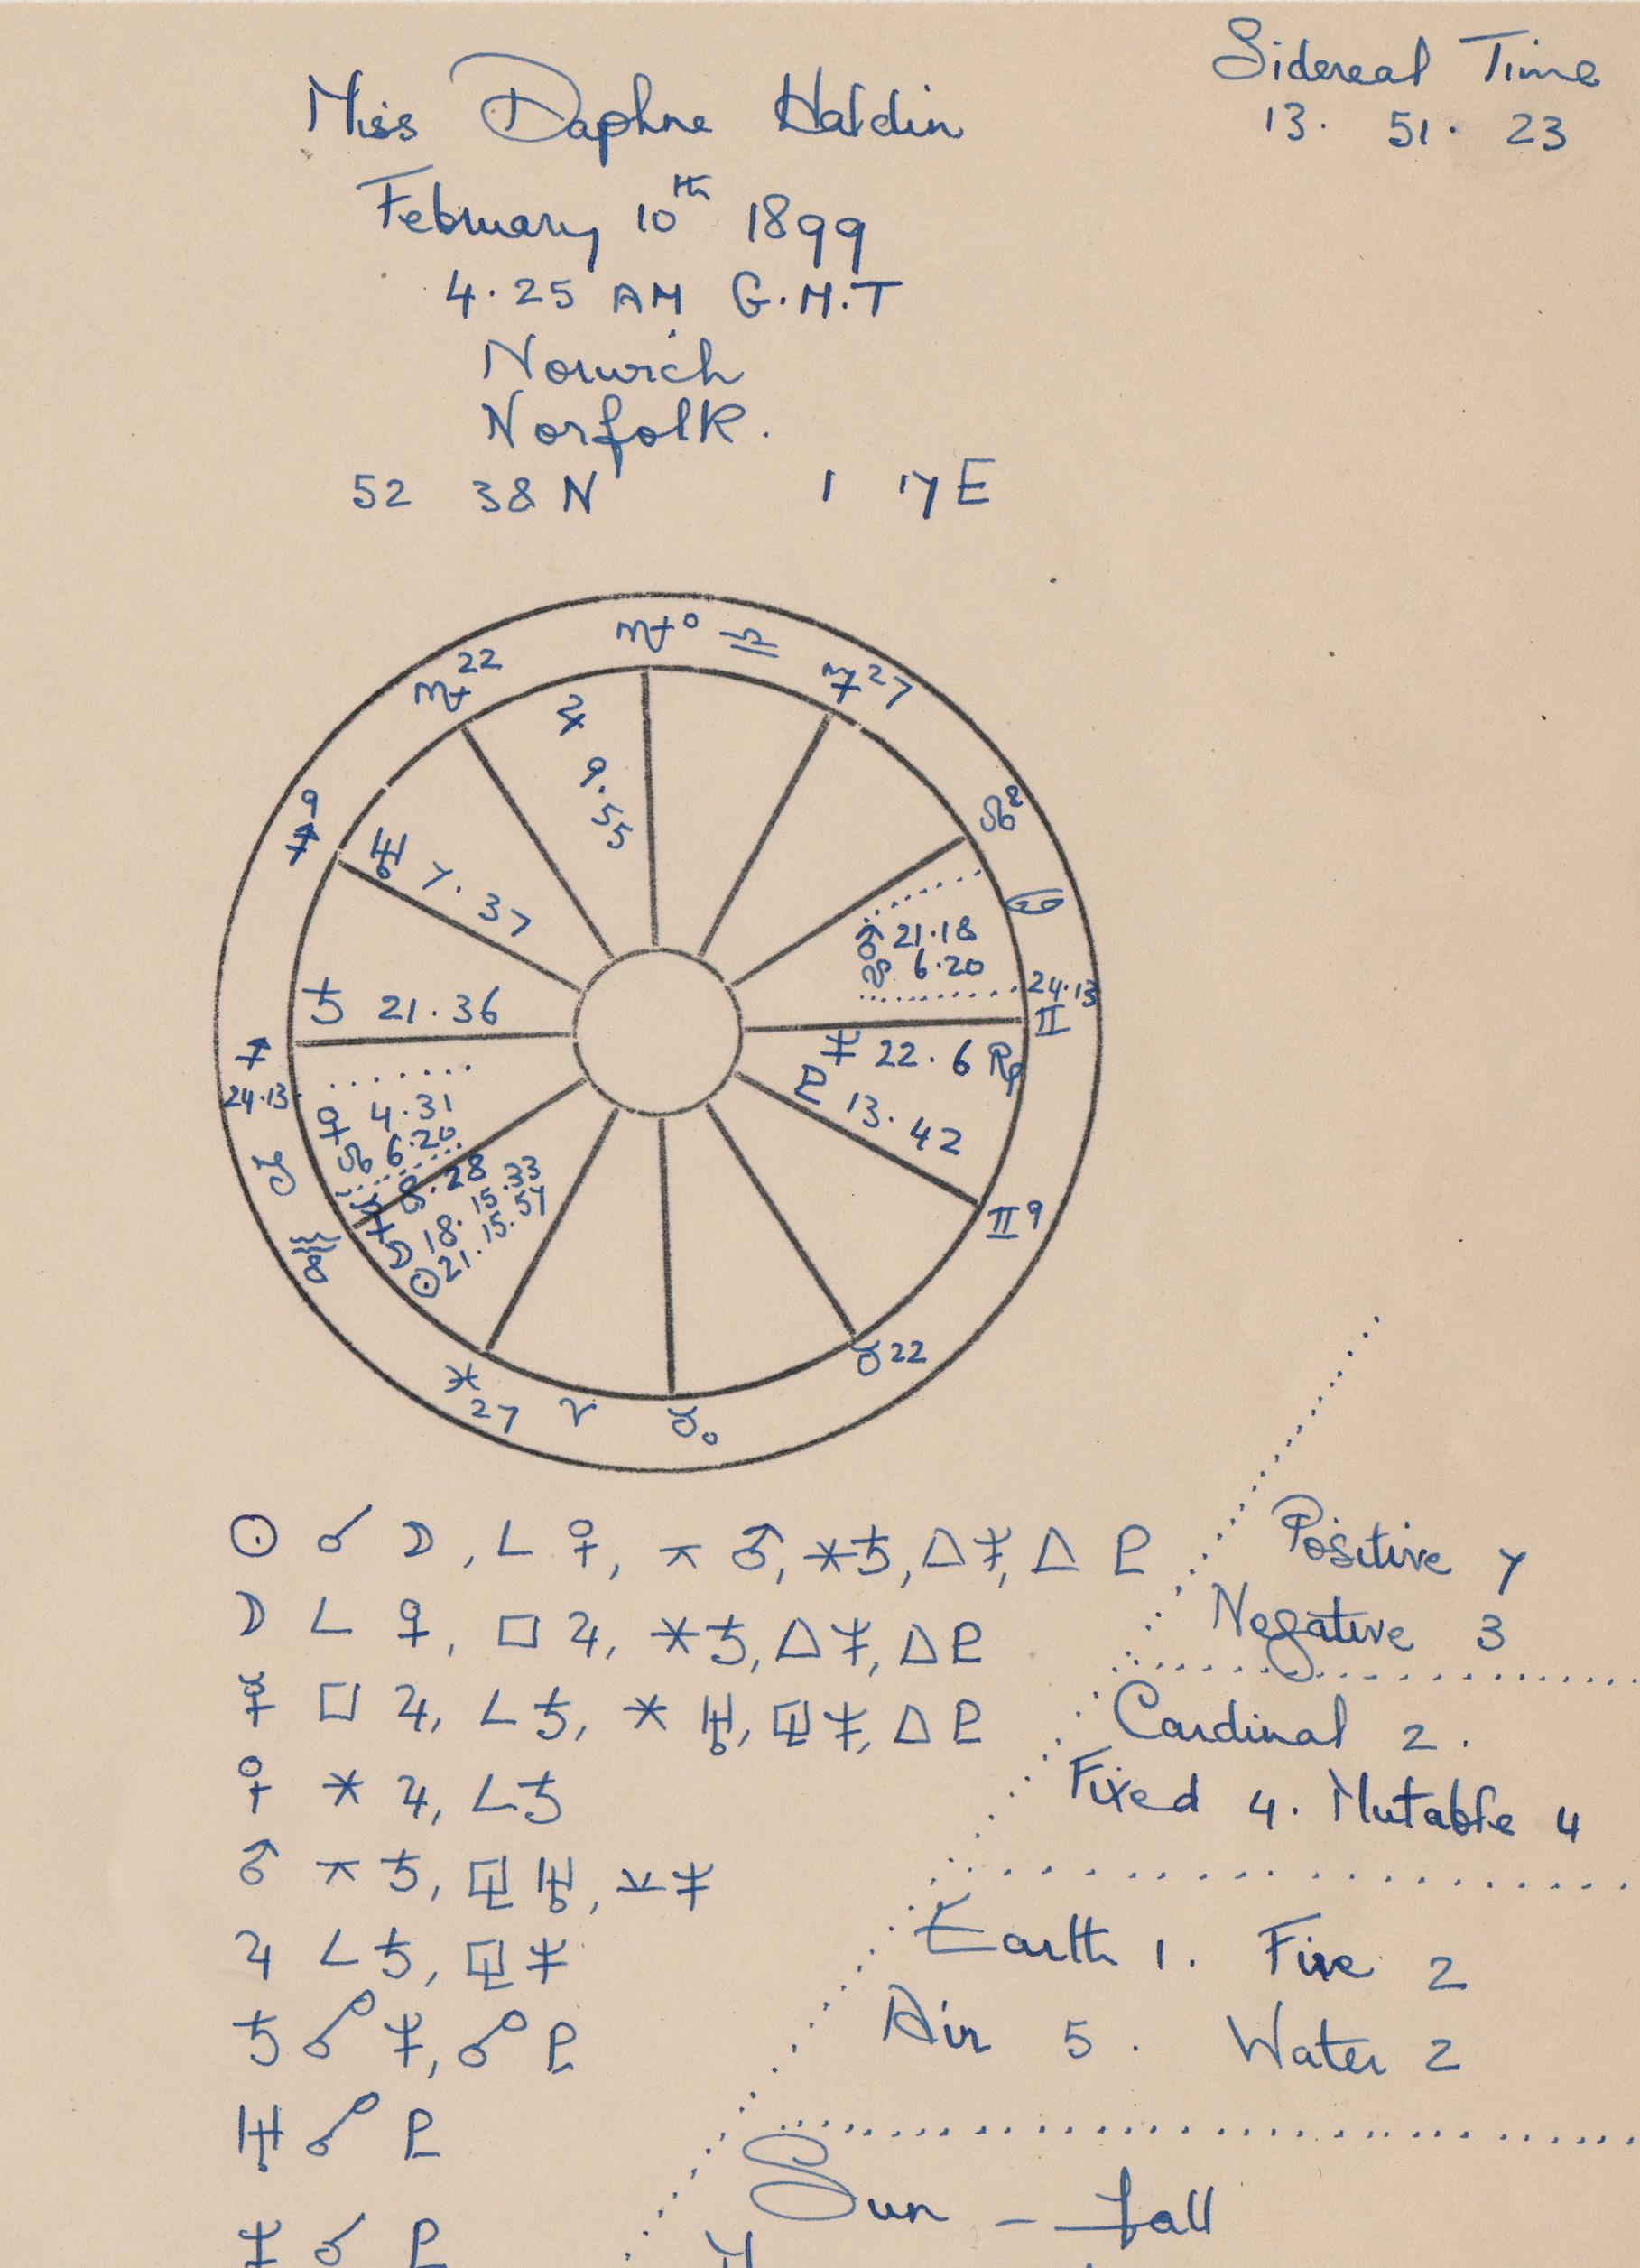 Sidereal Time
13. 51. 23
Miss Daphne Haldin
February 10th 1899
4.25 AM G.M.T
Norwich
Norfolk.
52 38 N 1 17 E
♏ 0 ♎
♏ 22
♍ 27
♃ 9.55
♐ 9
♌ 2
♅ 7.37
♋
♂ 21.18
☋ 6.20
24.13
♊
♄ 21.36
♐
24.13
♆ 22.6 ℞
♇ 13.42
♀ 4.31
☊ 6.20
♑
☿ 8.28
☽ 18.15.33
☉ 21.15.57
♒ 8
♊ 9
♉ 22
♓
27
♈
♉ 0
☉ ☌ ☽, ∠ ♀, ⚻ ♂, ⚹ ♄, △ ♆, △ ♇
Positive 7
☽ ∠ ♀, □ ♃, ⚹ ♄, △ ♆, △ ♇
Negative 3
☿ □ ♃, ∠ ♄, ⚹ ♅, ⚼ ♆, △ ♇
Cardinal 2.
♀ ⚹ ♃, ∠ ♄
Fixed 4. Mutable 4
♂ ⚻ ♄, ⚼ ♅, ⚺ ♆
♃ ∠ ♄, ⚼ ♆
Earth 1. Fire 2
♄ ☍ ♆, ☍ ♇
Air 5. Water 2
♅ ☍ ♇
Sun – fall
♆ ☌ ♇